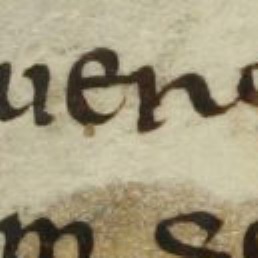 uen
m se